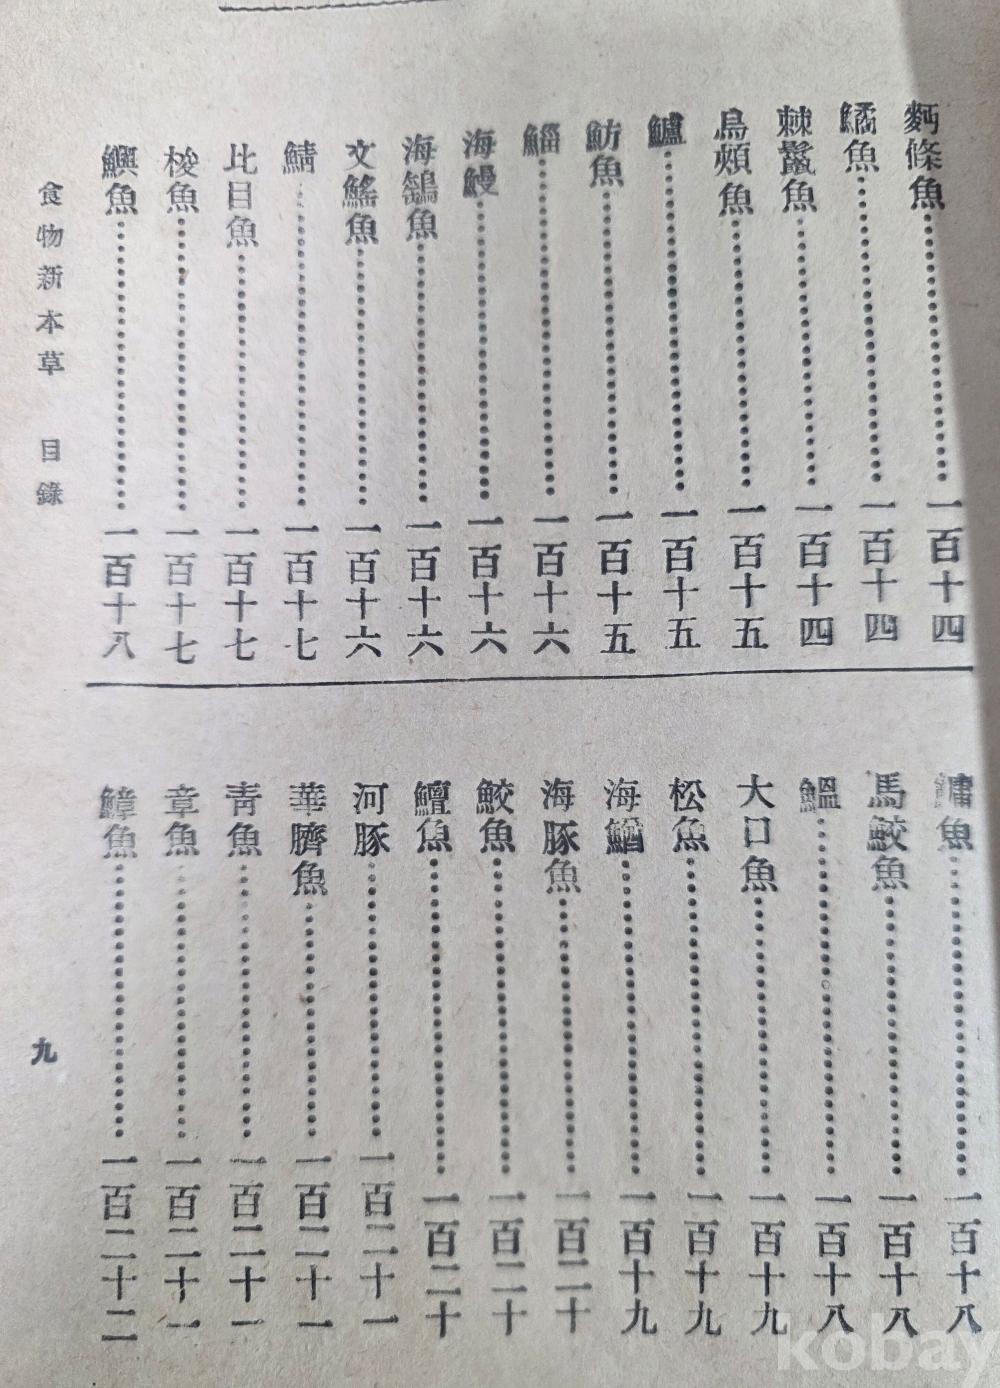 麪條魚…………………一百十四
鱊魚…………………一百十四
棘鬣魚…………………一百十四
烏頰魚…………………一百十五
鱸…………………一百十五
魴魚…………………一百十五
鯔…………………一百十六
海鰻…………………一百十六
海鷂魚…………………一百十六
文鰩魚…………………一百十六
鯖…………………一百十七
比目魚…………………一百十七
梭魚…………………一百十七
鱮魚…………………一百十八
鱅魚…………………一百十八
馬鮫魚…………………一百十八
鰛…………………一百十八
大口魚…………………一百十九
松魚…………………一百十九
海鰌…………………一百十九
海豚魚…………………一百二十
鮫魚…………………一百二十
鱣魚…………………一百二十
河豚…………………一百二十一
華臍魚…………………一百二十一
青魚…………………一百二十一
章魚…………………一百二十一
鱆魚…………………一百二十二
食物新本草 目錄
九
kobay